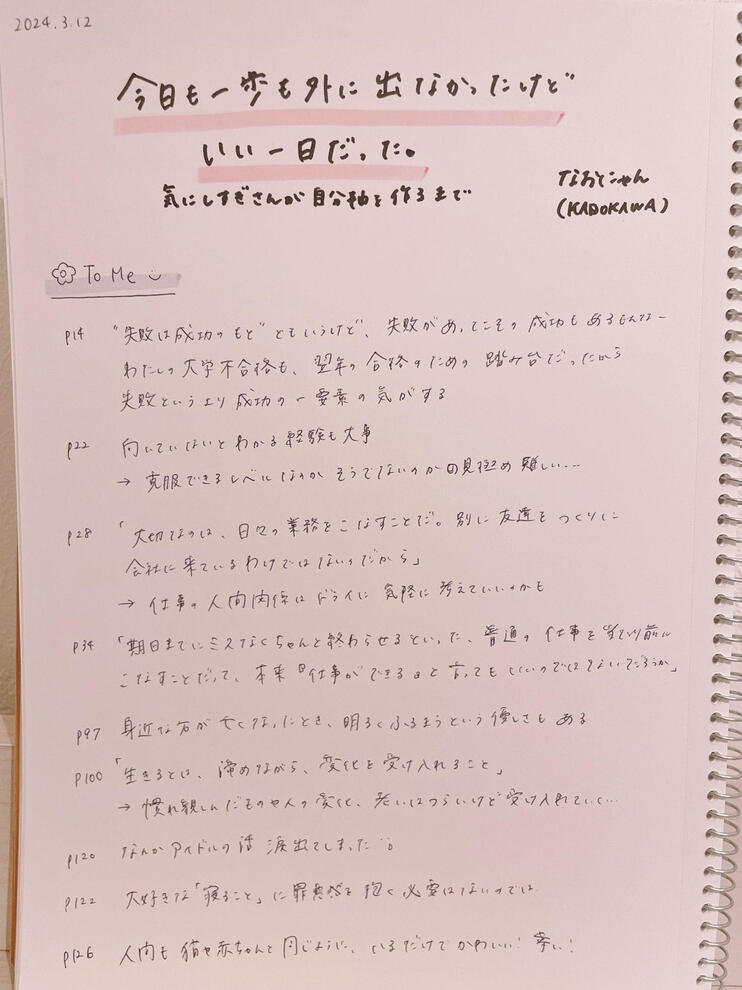 2024.3.12
今日も一歩も外に出なかったけど
いい一日だった。
気にしすぎさんが自分軸を作るまで
なおにゃん
(KADOKAWA)
To Me
p14 "失敗は成功のもと"ともいうけど、失敗があってこその成功もあるもんなー
わたしの大学不合格も、翌年の合格のための踏み台だったから
失敗というより成功の一要素の気がする
p22 向いていないとわかる経験も大事
→ 克服できるレベルなのかそうでないのかの見極め難しい…
p28 「大切なのは、日々の業務をこなすことだ。別に友達をつくりに
会社に来ているわけではないのだから」
→ 仕事の人間関係はドライに気軽に考えていいのかも
p34 「期日までにミスなくちゃんと終わらせるといった、普通の仕事を当たり前に
こなすことだって、本来『仕事ができる』と言ってもいいのではないだろうか」
p97 身近な方が亡くなったとき、明るくふるまうという優しさもある
p100 「生きるとは、諦めながら、変化を受け入れること」
→ 慣れ親しんだものや人の変化、老いはつらいけど受け入れていく…
p120 なんかアイドルの話 涙出てしまった
p122 大好きな「寝ること」に罪悪感を抱く必要はないのでは
p126 人間も猫や赤ちゃんと同じように、いるだけでかわいい！尊い！